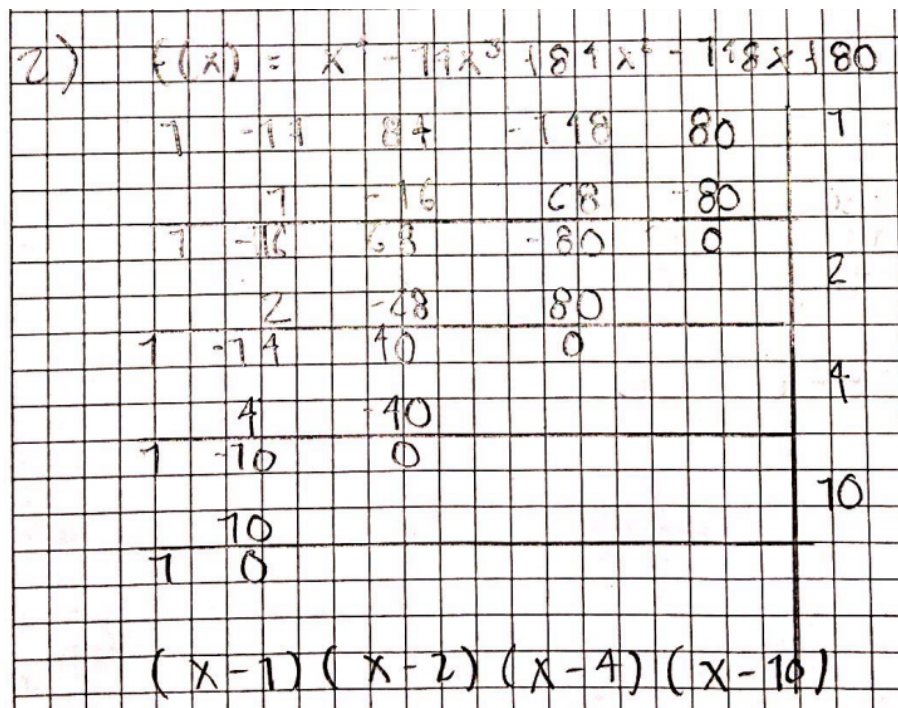 2) f(x) = x⁴ - 17x³ + 84x² - 148x + 80
1 -17 84 -148 80 1
1 -16 68 -80
1 -16 68 -80 0
2
2 -28 80
1 -14 40 0
4
4 -40
1 -10 0
10
10
1 0
(x-1)(x-2)(x-4)(x-10)